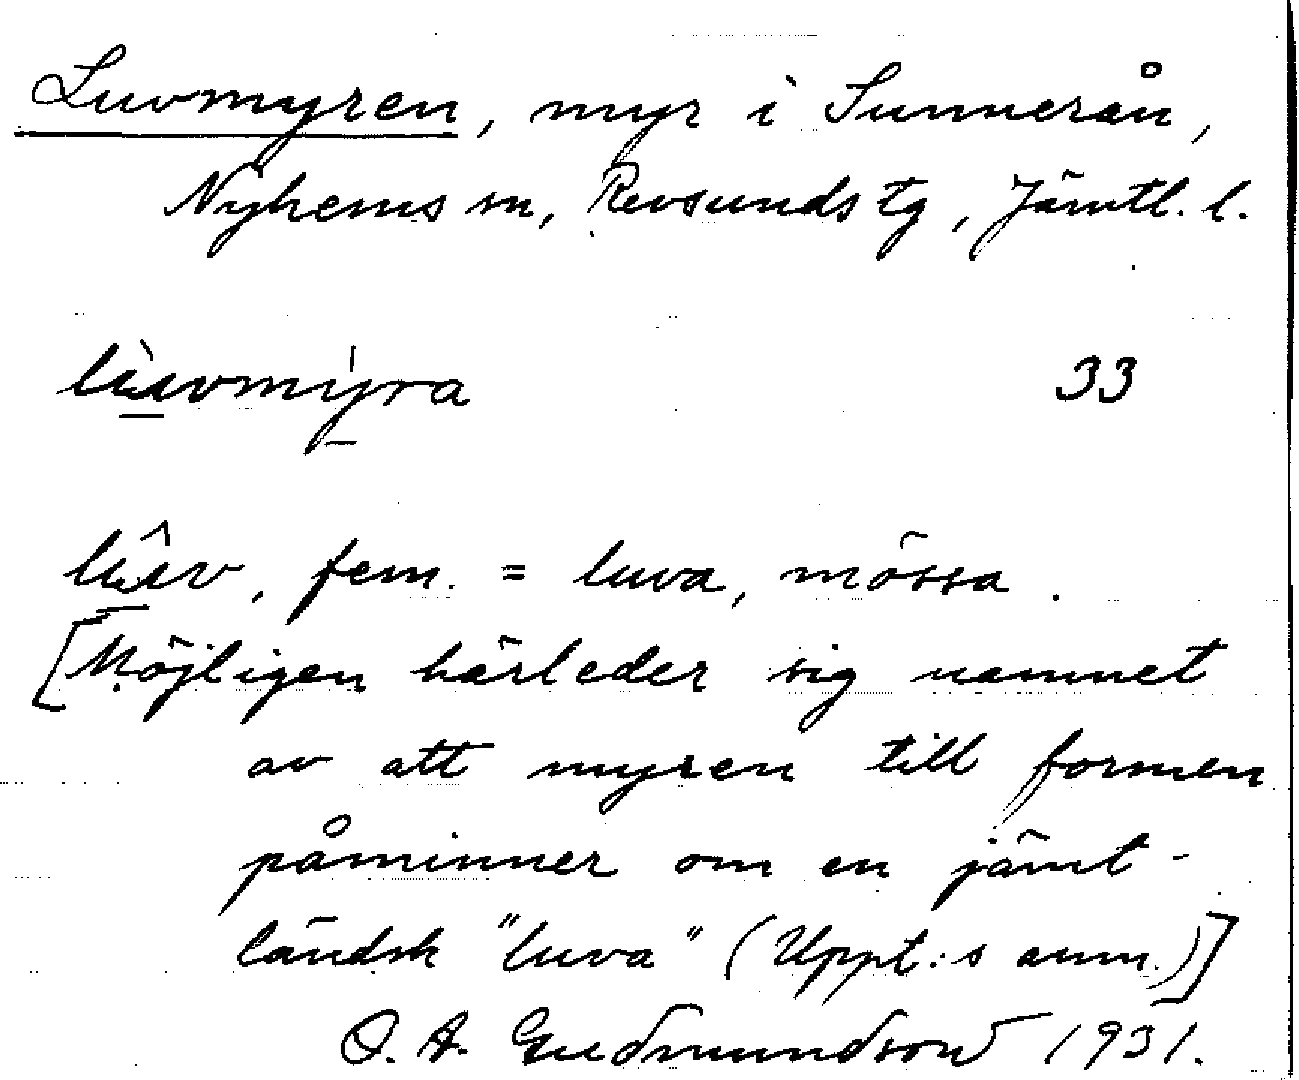 Luvmyren, myr i Sunnerån,
Nyhems sn, Revsunds tg, Jämtl. l.
33
fem. = luva, mössa.
[Möjligen härleder sig namnet
av att myren till formen
påminner om en jämt-
ländsk "luva" (Uppt:s anm.)]
O. A. Gudmundson 1931.